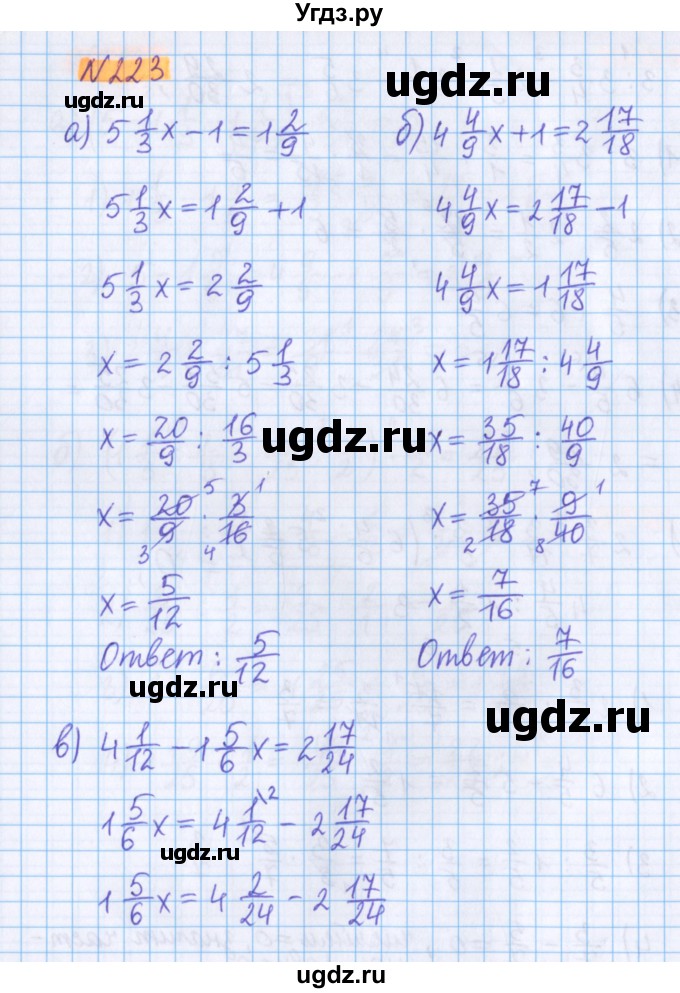 Угдз.ру
N223
ugdz.ru
ugdz.ru
а) 5 1/3 x − 1 = 1 2/9
5 1/3 x = 1 2/9 + 1
5 1/3 x = 2 2/9
x = 2 2/9 : 5 1/3
x = 20/9 : 16/3
ugdz.ru
x = 20/9 · 3/16
5 1
3 4
x = 5/12
Ответ: 5/12
ugdz.ru
б) 4 4/9 x + 1 = 2 17/18
4 4/9 x = 2 17/18 − 1
4 4/9 x = 1 17/18
x = 1 17/18 : 4 4/9
x = 35/18 : 40/9
x = 35/18 · 9/40
7 1
2 8
x = 7/16
Ответ: 7/16
ugdz.ru
в) 4 1/12 − 1 5/6 x = 2 17/24
1 5/6 x = 4 1/12 \2 − 2 17/24
ugdz.ru
1 5/6 x = 4 2/24 − 2 17/24
ugdz.ru